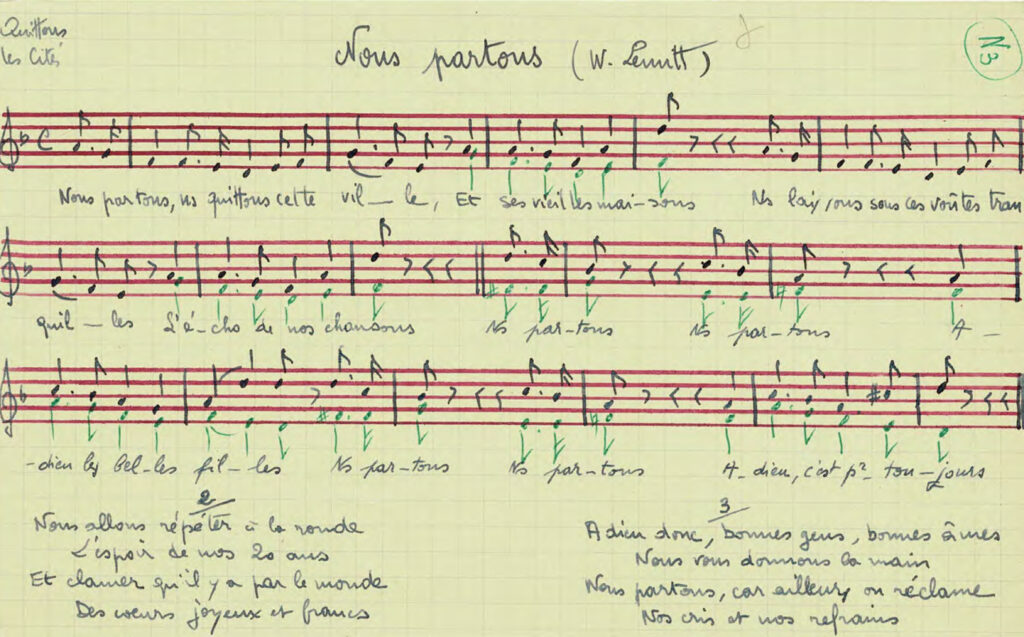 Quittons
les Cités
Nous partons (W. Lemitt)
N3
Nous partons, ns quittons cette vil - le, Et ses vieilles mai - sons Ns laissons sous ces voûtes tran
quil - les L'é - cho de nos chansons Ns par - tons Ns par - tons A -
- dieu les bel - les fil - les Ns par - tons Ns par - tons A - dieu, c'est pr tou - jours
2
Nous allons répéter à la ronde
L'espoir de nos 20 ans
Et clamer qu'il y a par le monde
Des coeurs joyeux et francs
3
Adieu donc, bonnes gens, bonnes âmes
Nous vous donnons la main
Nous partons, car ailleurs on réclame
Nos cris et nos refrains